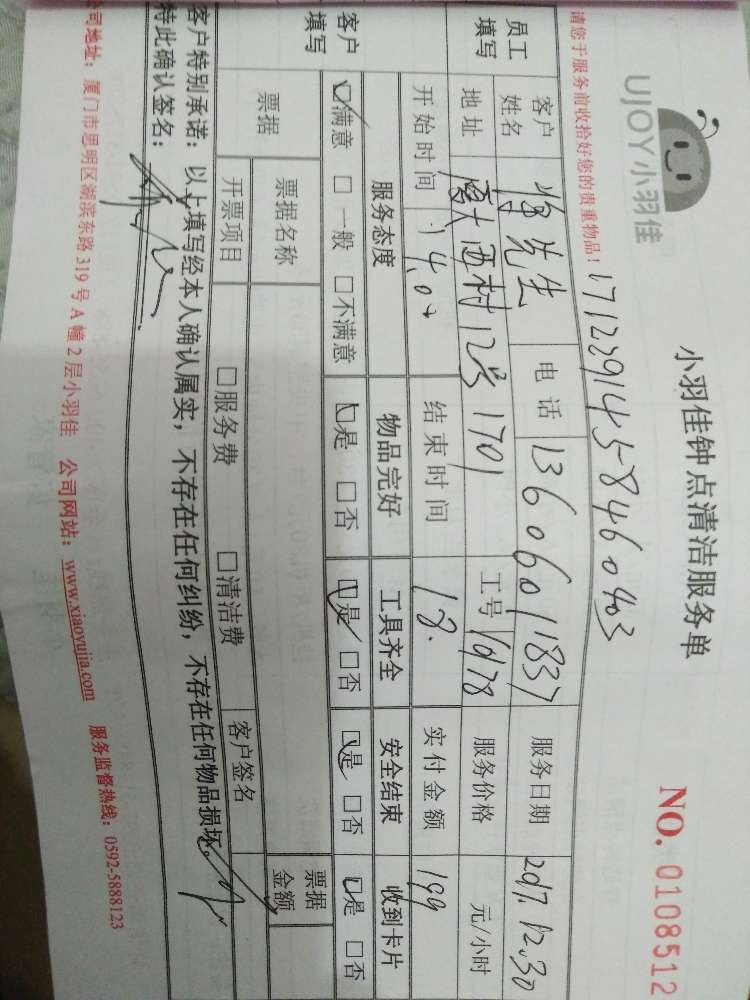 UJOY小羽佳
小羽佳钟点清洁服务单
NO. 0108512
请您于服务前收拾好您的贵重物品!
171229145846403
员工填写
客户姓名 先生 电话 13606011837 服务日期 2017.12.30
地址 厦大西村12号1701 工号 1678 服务价格 元/小时
开始时间 14:00 结束时间 18. 实付金额 199
客户填写
服务态度 物品完好 工具齐全 安全结束 收到卡片
□满意 □一般 □不满意 □是 □否 □是 □否 □是 □否 □是 □否
票据 票据名称 票据金额
开票项目 □服务费 □清洁费 客户签名
客户特别承诺：以上填写经本人确认属实，不存在任何纠纷，不存在任何物品损坏。
特此确认签名：
公司地址：厦门市思明区湖滨东路319号A幢2层小羽佳 公司网站：www.xiaoyujia.com 服务监督热线：0592-5888123